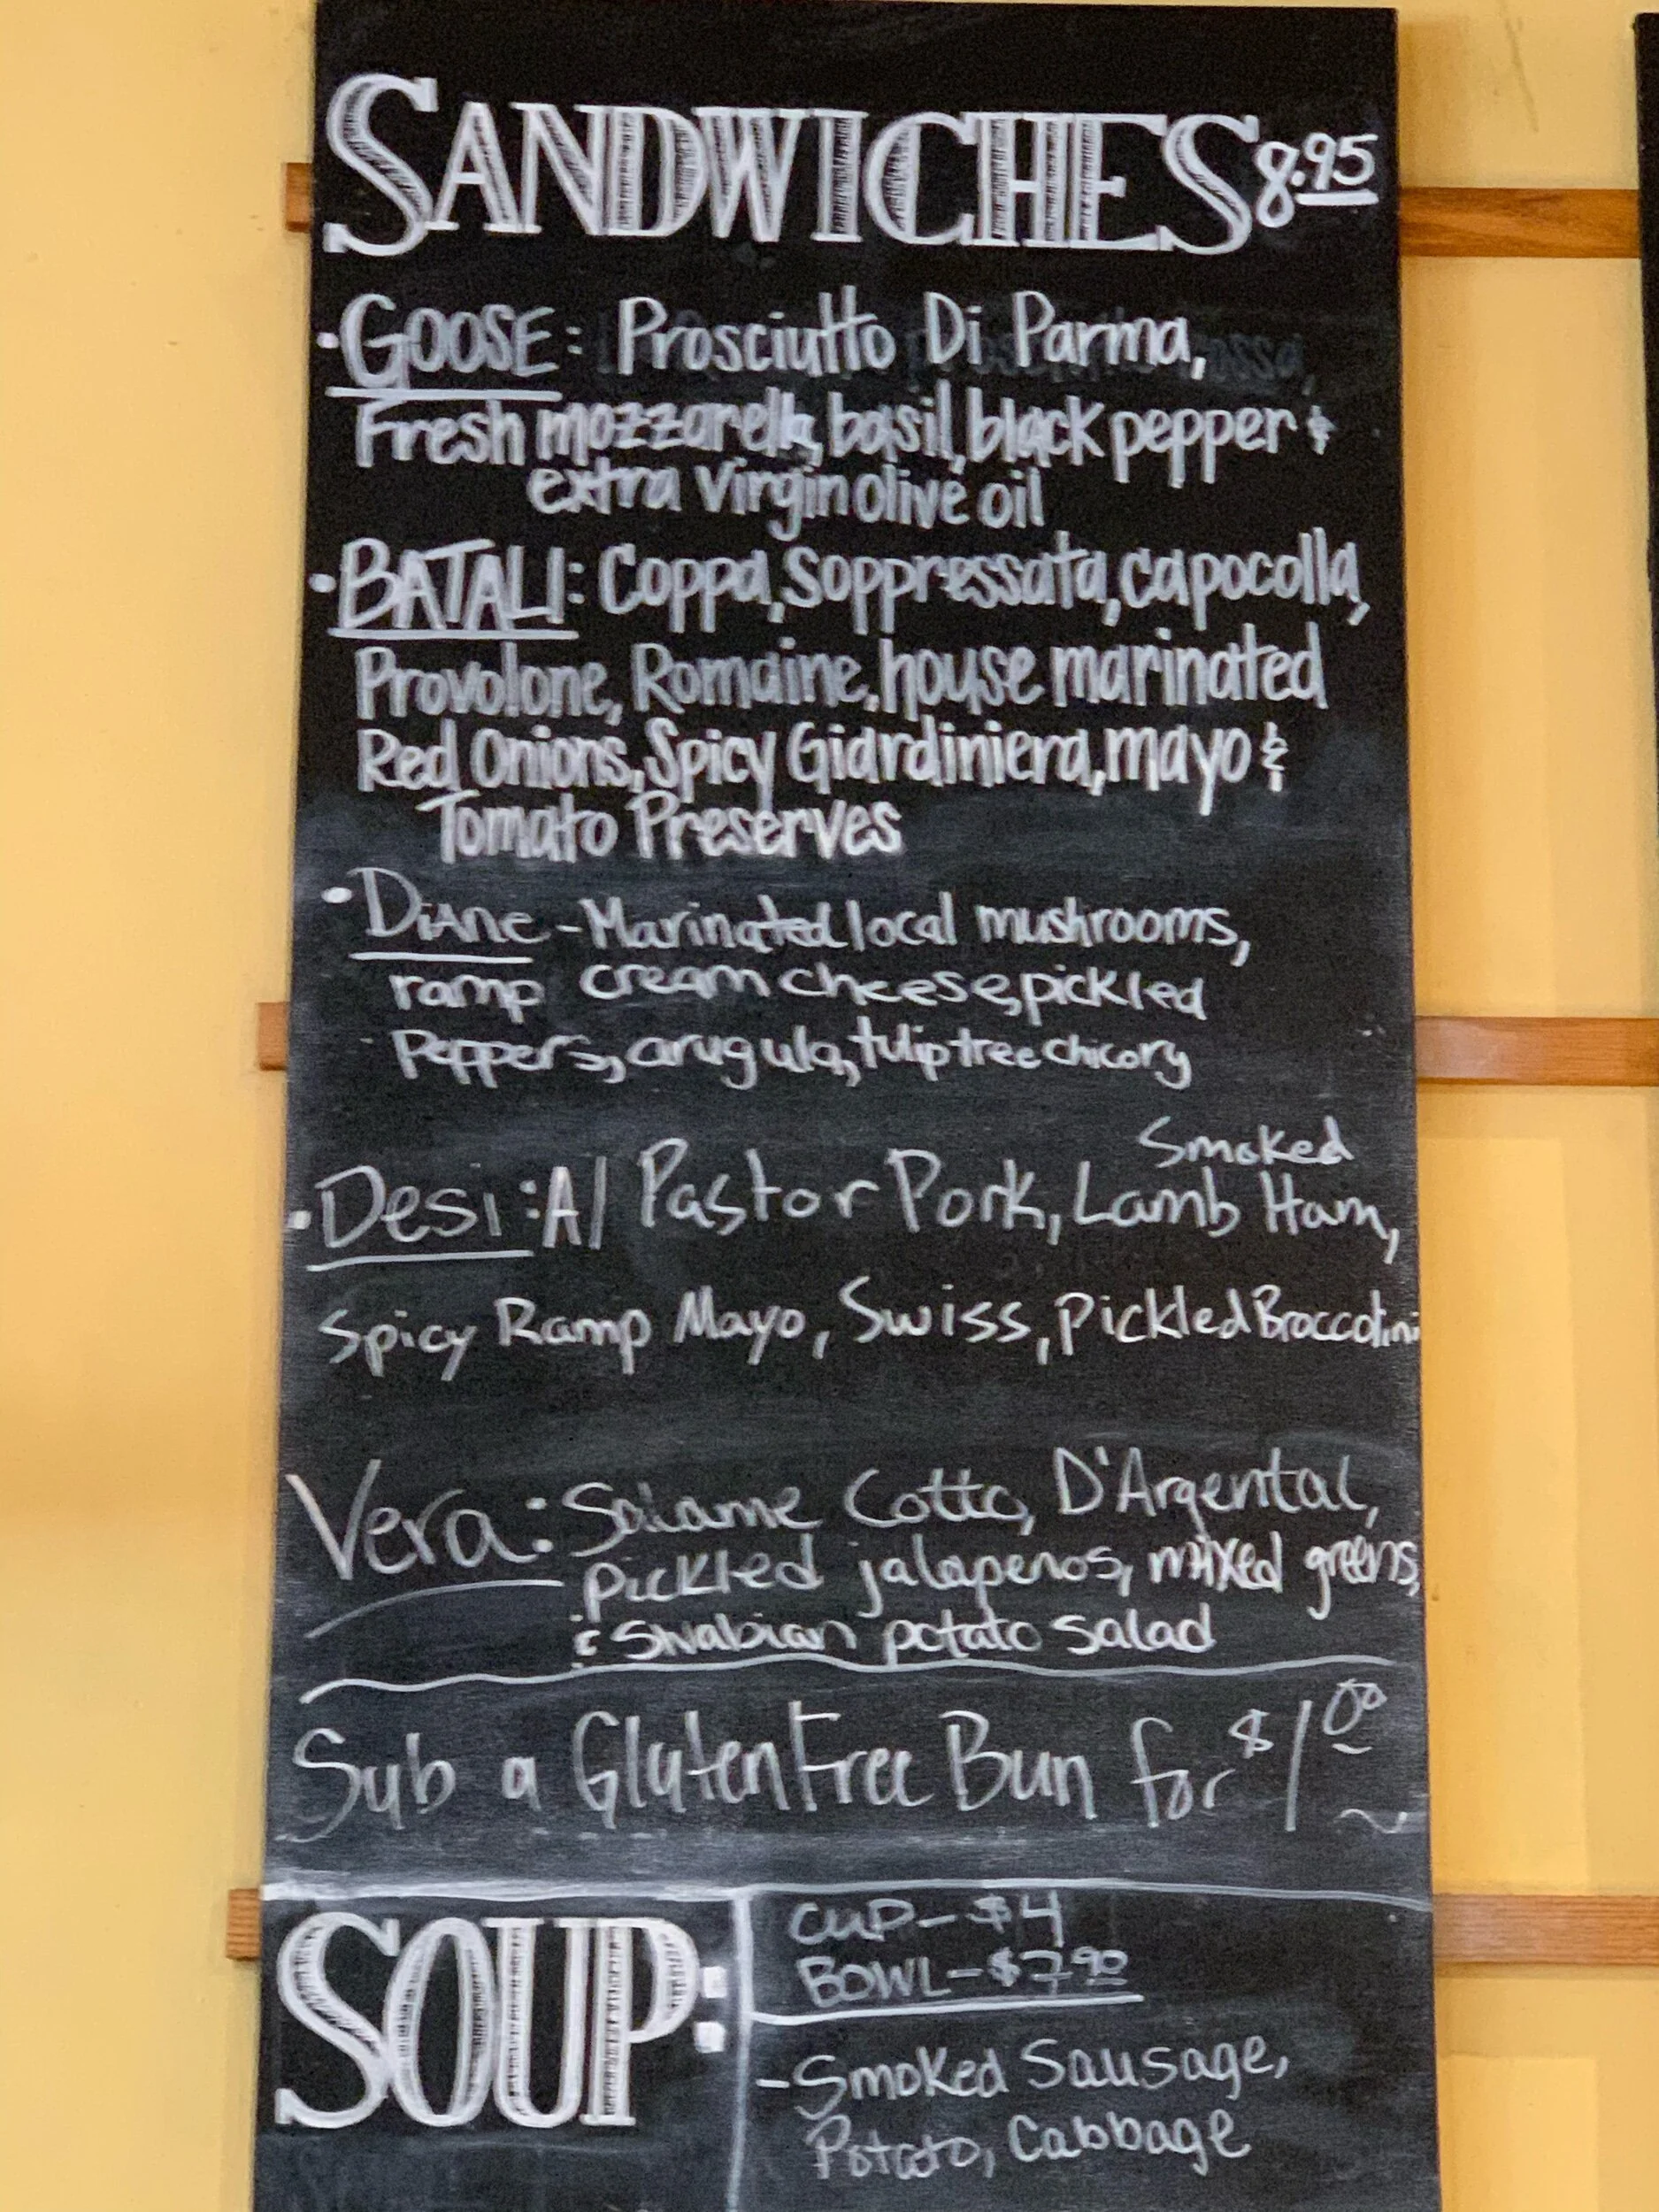 SANDWICHES 8.95
·GOOSE: Prosciutto Di Parma,
Fresh mozzarella, basil, black pepper &
extra virgin olive oil
·BATALI: Coppa, Soppressata, capocolla,
Provolone, Romaine, house marinated
Red Onions, Spicy Giardiniera, mayo &
Tomato Preserves
·Diane - Marinated local mushrooms,
ramp cream cheese, pickled
Peppers, arugula, tulip tree chicory
Smoked
·Desi: Al Pastor Pork, Lamb Ham,
Spicy Ramp Mayo, Swiss, Pickled Broccolini
Vera: Salame Cotto, D'Argental,
pickled jalapenos, mixed greens,
& Swabian potato salad
Sub a Gluten Free Bun for $1.00
SOUP:
CUP - $4
BOWL - $7.90
- Smoked Sausage,
Potato, Cabbage